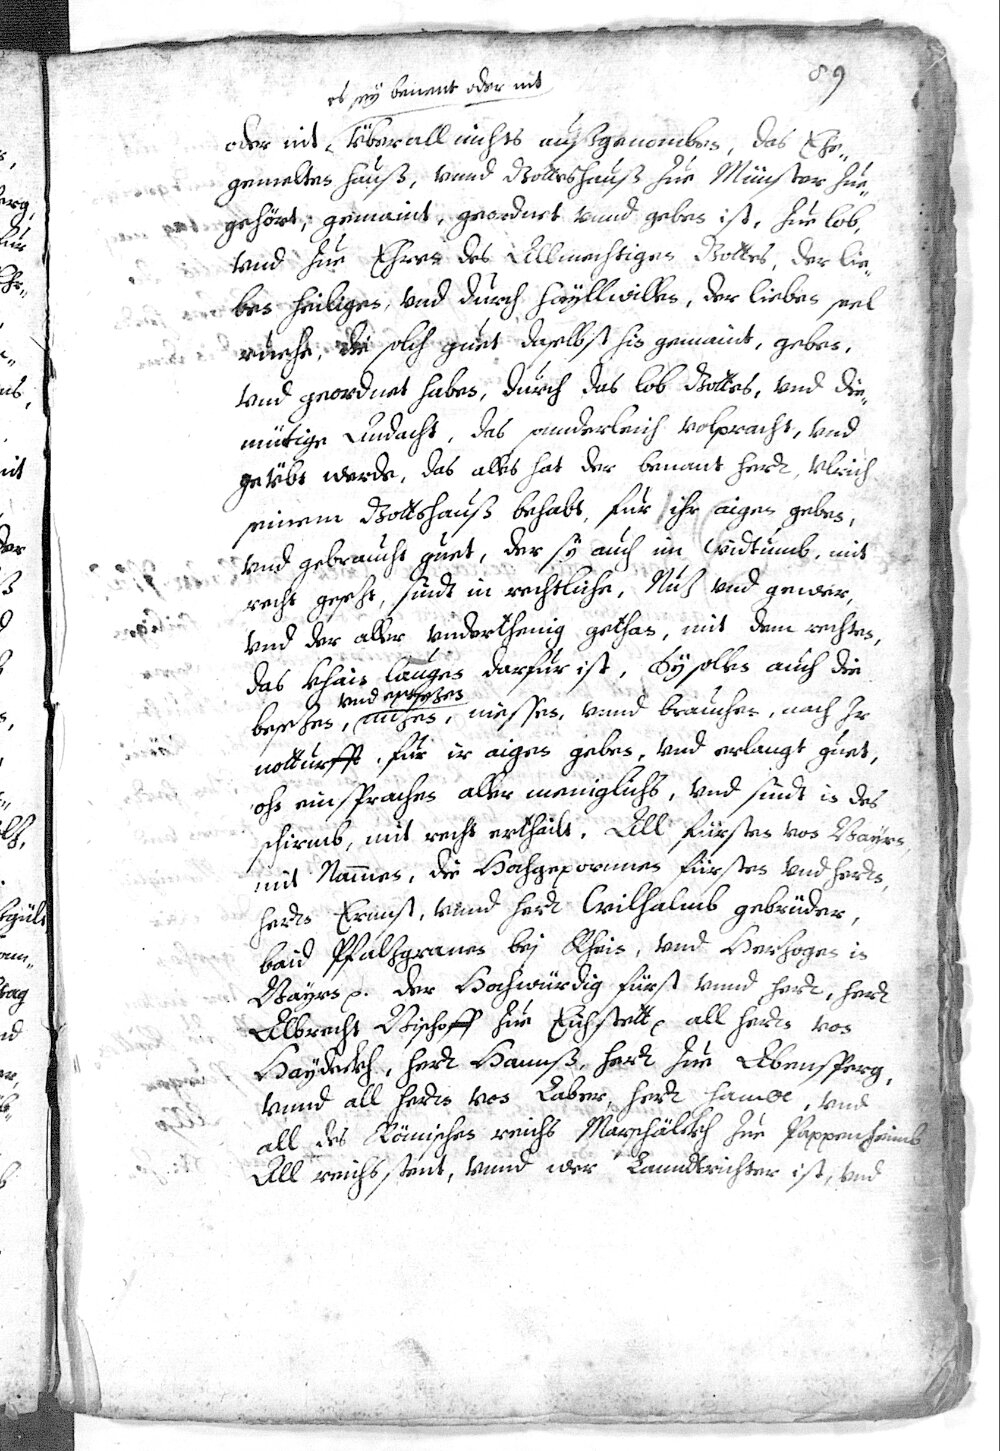 89
es sey benent oder nit
oder nit, Überall nichts außgenomben, das Ehe-
gemelten hauß, vnnd Gotteshauß zue Münster zue-
gehört, gemaint, geordnet vnnd geben ist, zue lob,
vnd zue Ehren des Allmechtigen Gottes, der lie-
ben heiligen, vnd durch haÿllwillen, der lieben seel
ruehe, die solch guet daselbst hin gemaint, geben,
vnd geordnet haben, durch das lob Gottes, vnd die-
mütige Andacht, das sonnderleich volpracht, vnd
geübt werde, das alles hat der benant herr, Vlrich
seinem Gottshauß behabt, für ihr aigen geben,
vnd gebraucht guet, der sÿ auch im Widtumb, mit
recht gesezt, sindt in rechtliche, Nuz vnd gewer,
vnd der aller vnderthenig gethan, mit dem rechten,
das khain laugen darfür ist, Sÿ sollen auch die
vnd entsezen
besezen, nuzen, niessen, vnnd brauchen, nach Ir
notturfft, für ir aigen geben, vnd erlangt guet,
ohn einsprachen aller meniglichs, vnd sindt in des
schirmb, mit recht erthailt. All fürsten von Baÿrn,
mit Nammen, die Hochgepornnen fürsten vnd herrn,
herrn Ernnst, vnnd herr Wilhalmb gebrüder,
baid Pfalzgrauen beÿ Rhein, vnd Herzogen in
Baÿrn p. der Hochwürdig fürst vnnd herr, herr
Albrecht Bischoff zue Eichstett p all herrn von
Haÿdeckh, herr Hannß, herr zue Abensperg,
vnnd all herrn von Laber, herr , vnd
all des Römischen reichs Marschälckh zue Pappenheimb
All reichsstent, vnnd wer Lanndtrichter ist, vnd